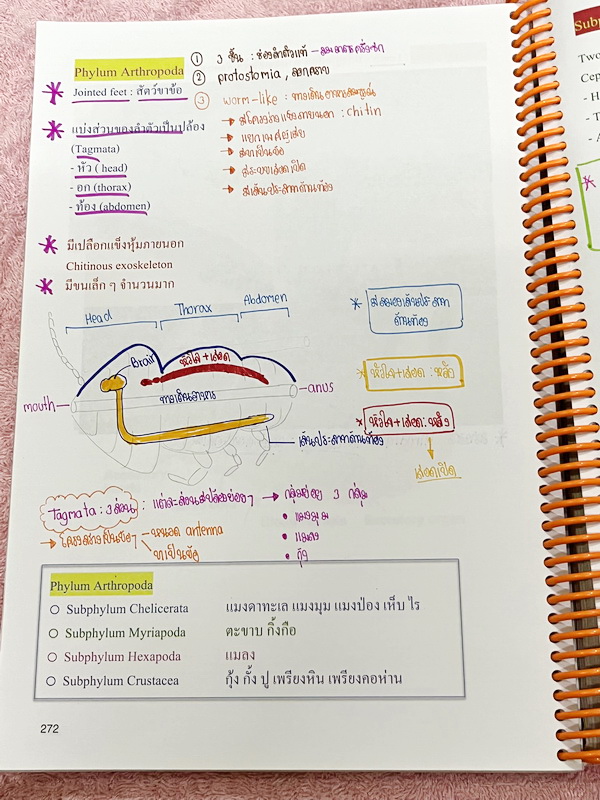 Phylum Arthropoda
① 3 ชั้น : ช่องลำตัวแท้ -
② protostomia , ลอกคราบ
Jointed feet : สัตว์ขาข้อ
③ worm-like : ทางเดินอาหารสมบูรณ์
→ มีโครงร่างแข็งภายนอก : chitin
แบ่งส่วนของลำตัวเป็นปล้อง
→ แยกเพศผู้เมีย
(Tagmata)
→ ขาเป็นข้อ
- หัว ( head)
→ ระบบเลือดเปิด
- อก (thorax)
→ มีเส้นประสาทด้านท้อง
- ท้อง (abdomen)
มีเปลือกแข็งหุ้มภายนอก
Chitinous exoskeleton
มีขนเล็ก ๆ จำนวนมาก
Head Thorax Abdomen
เส้นประสาท
ด้านท้อง
Brain
หัวใจ+เลือด
หัวใจ+เลือด : หลัง
ทางเดินอาหาร
mouth
anus
หัวใจ+เลือด : หลัง
เส้นประสาทด้านท้อง
เลือดเปิด
Tagmata : 3 ส่วน : แต่ละส่วนมีปล้องย่อยๆ → กลุ่มย่อย 3 กลุ่ม
• แมงมุม
→ เป็นข้อๆ - หนวด antenna
• แมลง
ขาเป็นข้อ
• กุ้ง
Phylum Arthropoda
○ Subphylum Chelicerata แมงดาทะเล แมงมุม แมงป่อง เห็บ ไร
○ Subphylum Myriapoda ตะขาบ กิ้งกือ
○ Subphylum Hexapoda แมลง
○ Subphylum Crustacea กุ้ง กั้ง ปู เพรียงหิน เพรียงคอห่าน
272
Subp
Two
Cep
- H
- T
- A